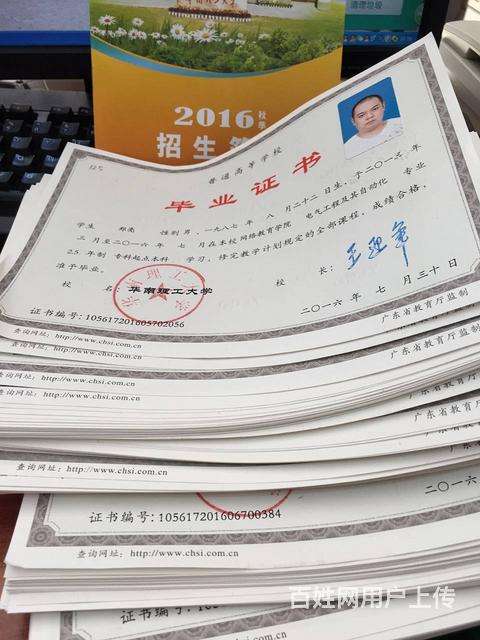 清理垃圾
2016 秋季
招生
普通高等学校
毕业证书
学生 郑亮 性别 男，一九八七年 八 月二十二日生，于二〇一三年
三 月至二〇一六年 七 月在本校 网络教育学院 电气工程及其自动化 专业
2.5 年制 专科起点本科 学习，修完教学计划规定的全部课程，成绩合格，
准予毕业。
校 名： 华南理工大学
校 长：
二〇一六年 七 月三十日
证书编号：105617201605702056
广东省教育厅监制
查询网址：http://www.chsi.com.cn
广东省教育厅监制
查询网址：http://www.chsi.com.cn
广东省教育厅监制
查询网址：http://www.chsi.com.cn
广东省教育厅监制
查询网址：http://www.chsi.com.cn
广东省教育厅监制
查询网址：http://www.chsi.com.cn
二〇一六
证书编号：105617201606700384
查询网址：http://www.chsi.com.cn
证书编号：
百姓网用户上传